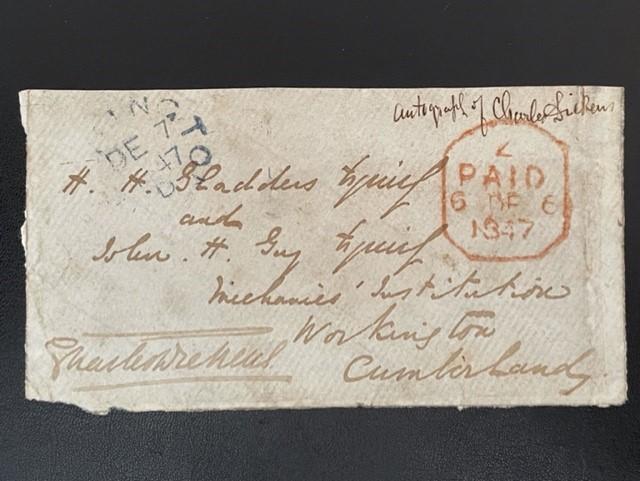 Autograph of Charles Dickens
INGTO
DE 7
47
Z
PAID
6 DE 6
1847
H. H. Gladders Esquire
and
John. H. Guy Esquire
Mechanics' Institution
Workington
Cumberland.
Charles Dickens